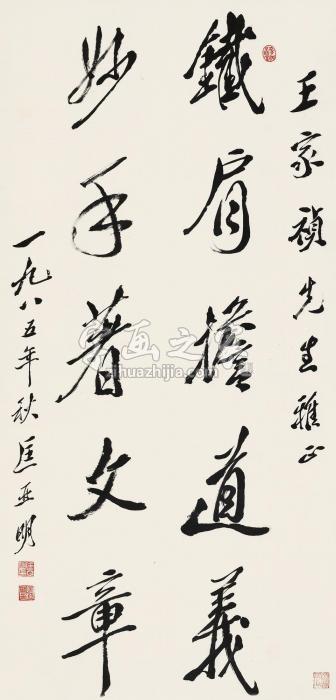 王家祯先生雅正
鐵肩擔道義
妙手著文章
一九八五年秋匡亚明
书画之家
zihuazhijia.com